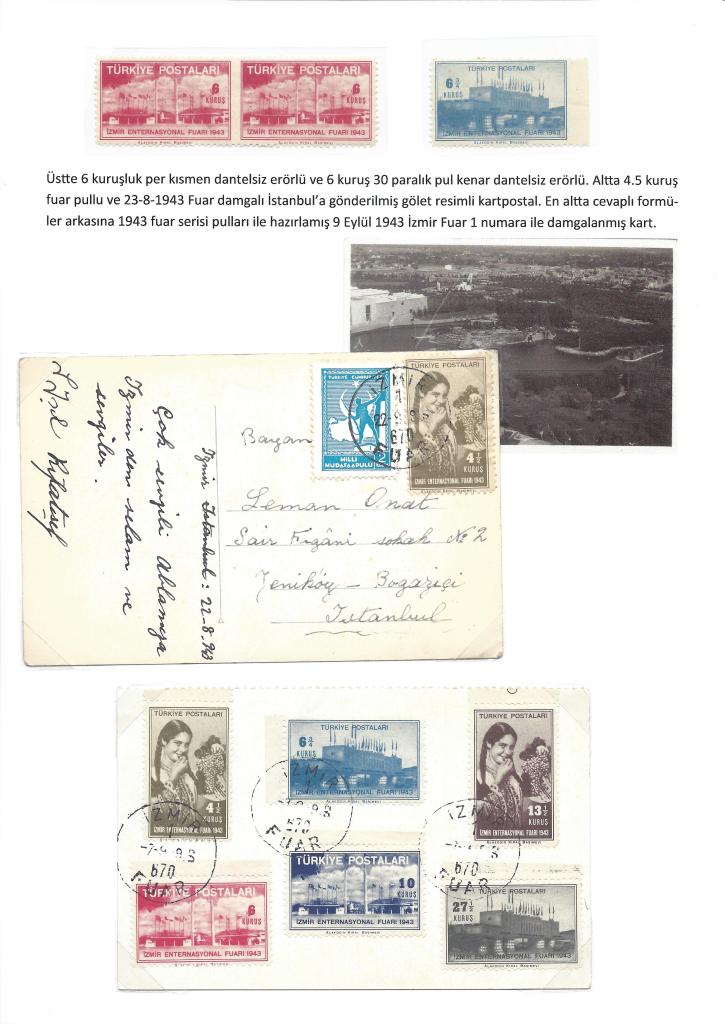 TÜRKİYE POSTALARI
6
KURUŞ
İZMİR ENTERNASYONAL FUARI 1943
ALAEDDİN KIRAL BASIMEVİ
TÜRKİYE POSTALARI
6
KURUŞ
İZMİR ENTERNASYONAL FUARI 1943
ALAEDDİN KIRAL BASIMEVİ
TÜRKİYE POSTALARI
6 3/4
KURUŞ
İZMİR ENTERNASYONAL FUARI 1943
ALAEDDİN KIRAL BASIMEVİ
Üstte 6 kuruşluk per kısmen dantelsiz erörlü ve 6 kuruş 30 paralık pul kenar dantelsiz erörlü. Altta 4.5 kuruş
fuar pullu ve 23-8-1943 Fuar damgalı İstanbul’a gönderilmiş gölet resimli kartpostal. En altta cevaplı formü-
ler arkasına 1943 fuar serisi pulları ile hazırlamış 9 Eylül 1943 İzmir Fuar 1 numara ile damgalanmış kart.
Çok sevgili Ablamıza
İzmir den selam ve
sevgiler.
İzmir İstanbul: 22-8-943
TÜRKİYE CUMHURİYETİ
MİLLİ
MÜDAFAA PULU
2
TÜRKİYE POSTALARI
4 1/2
KURUŞ
İZMİR ENTERNASYONAL FUARI 1943
İZMİR
1
670
FUAR
Bayan
Leman Onat
Şair Figâni sokak № 2
Yeniköy – Boğaziçi
İstanbul
TÜRKİYE POSTALARI
4 1/2
KURUŞ
İZMİR ENTERNASYONAL FUARI 1943
TÜRKİYE POSTALARI
6 3/4
KURUŞ
İZMİR ENTERNASYONAL FUARI 1943
ALAEDDİN KIRAL BASIMEVİ
TÜRKİYE POSTALARI
13 1/2
KURUŞ
İZMİR ENTERNASYONAL FUARI 1943
ALAEDDİN KIRAL BASIMEVİ
İZMİR
670
FUAR
İZMİR
670
FUAR
İZMİR
670
FUAR
TÜRKİYE POSTALARI
6
KURUŞ
İZMİR ENTERNASYONAL FUARI 1943
TÜRKİYE POSTALARI
10
KURUŞ
İZMİR ENTERNASYONAL FUARI 1943
ALAEDDİN KIRAL BASIMEVİ
TÜRKİYE POSTALARI
27 1/2
KURUŞ
İZMİR ENTERNASYONAL FUARI 1943
ALAEDDİN KIRAL BASIMEVİ